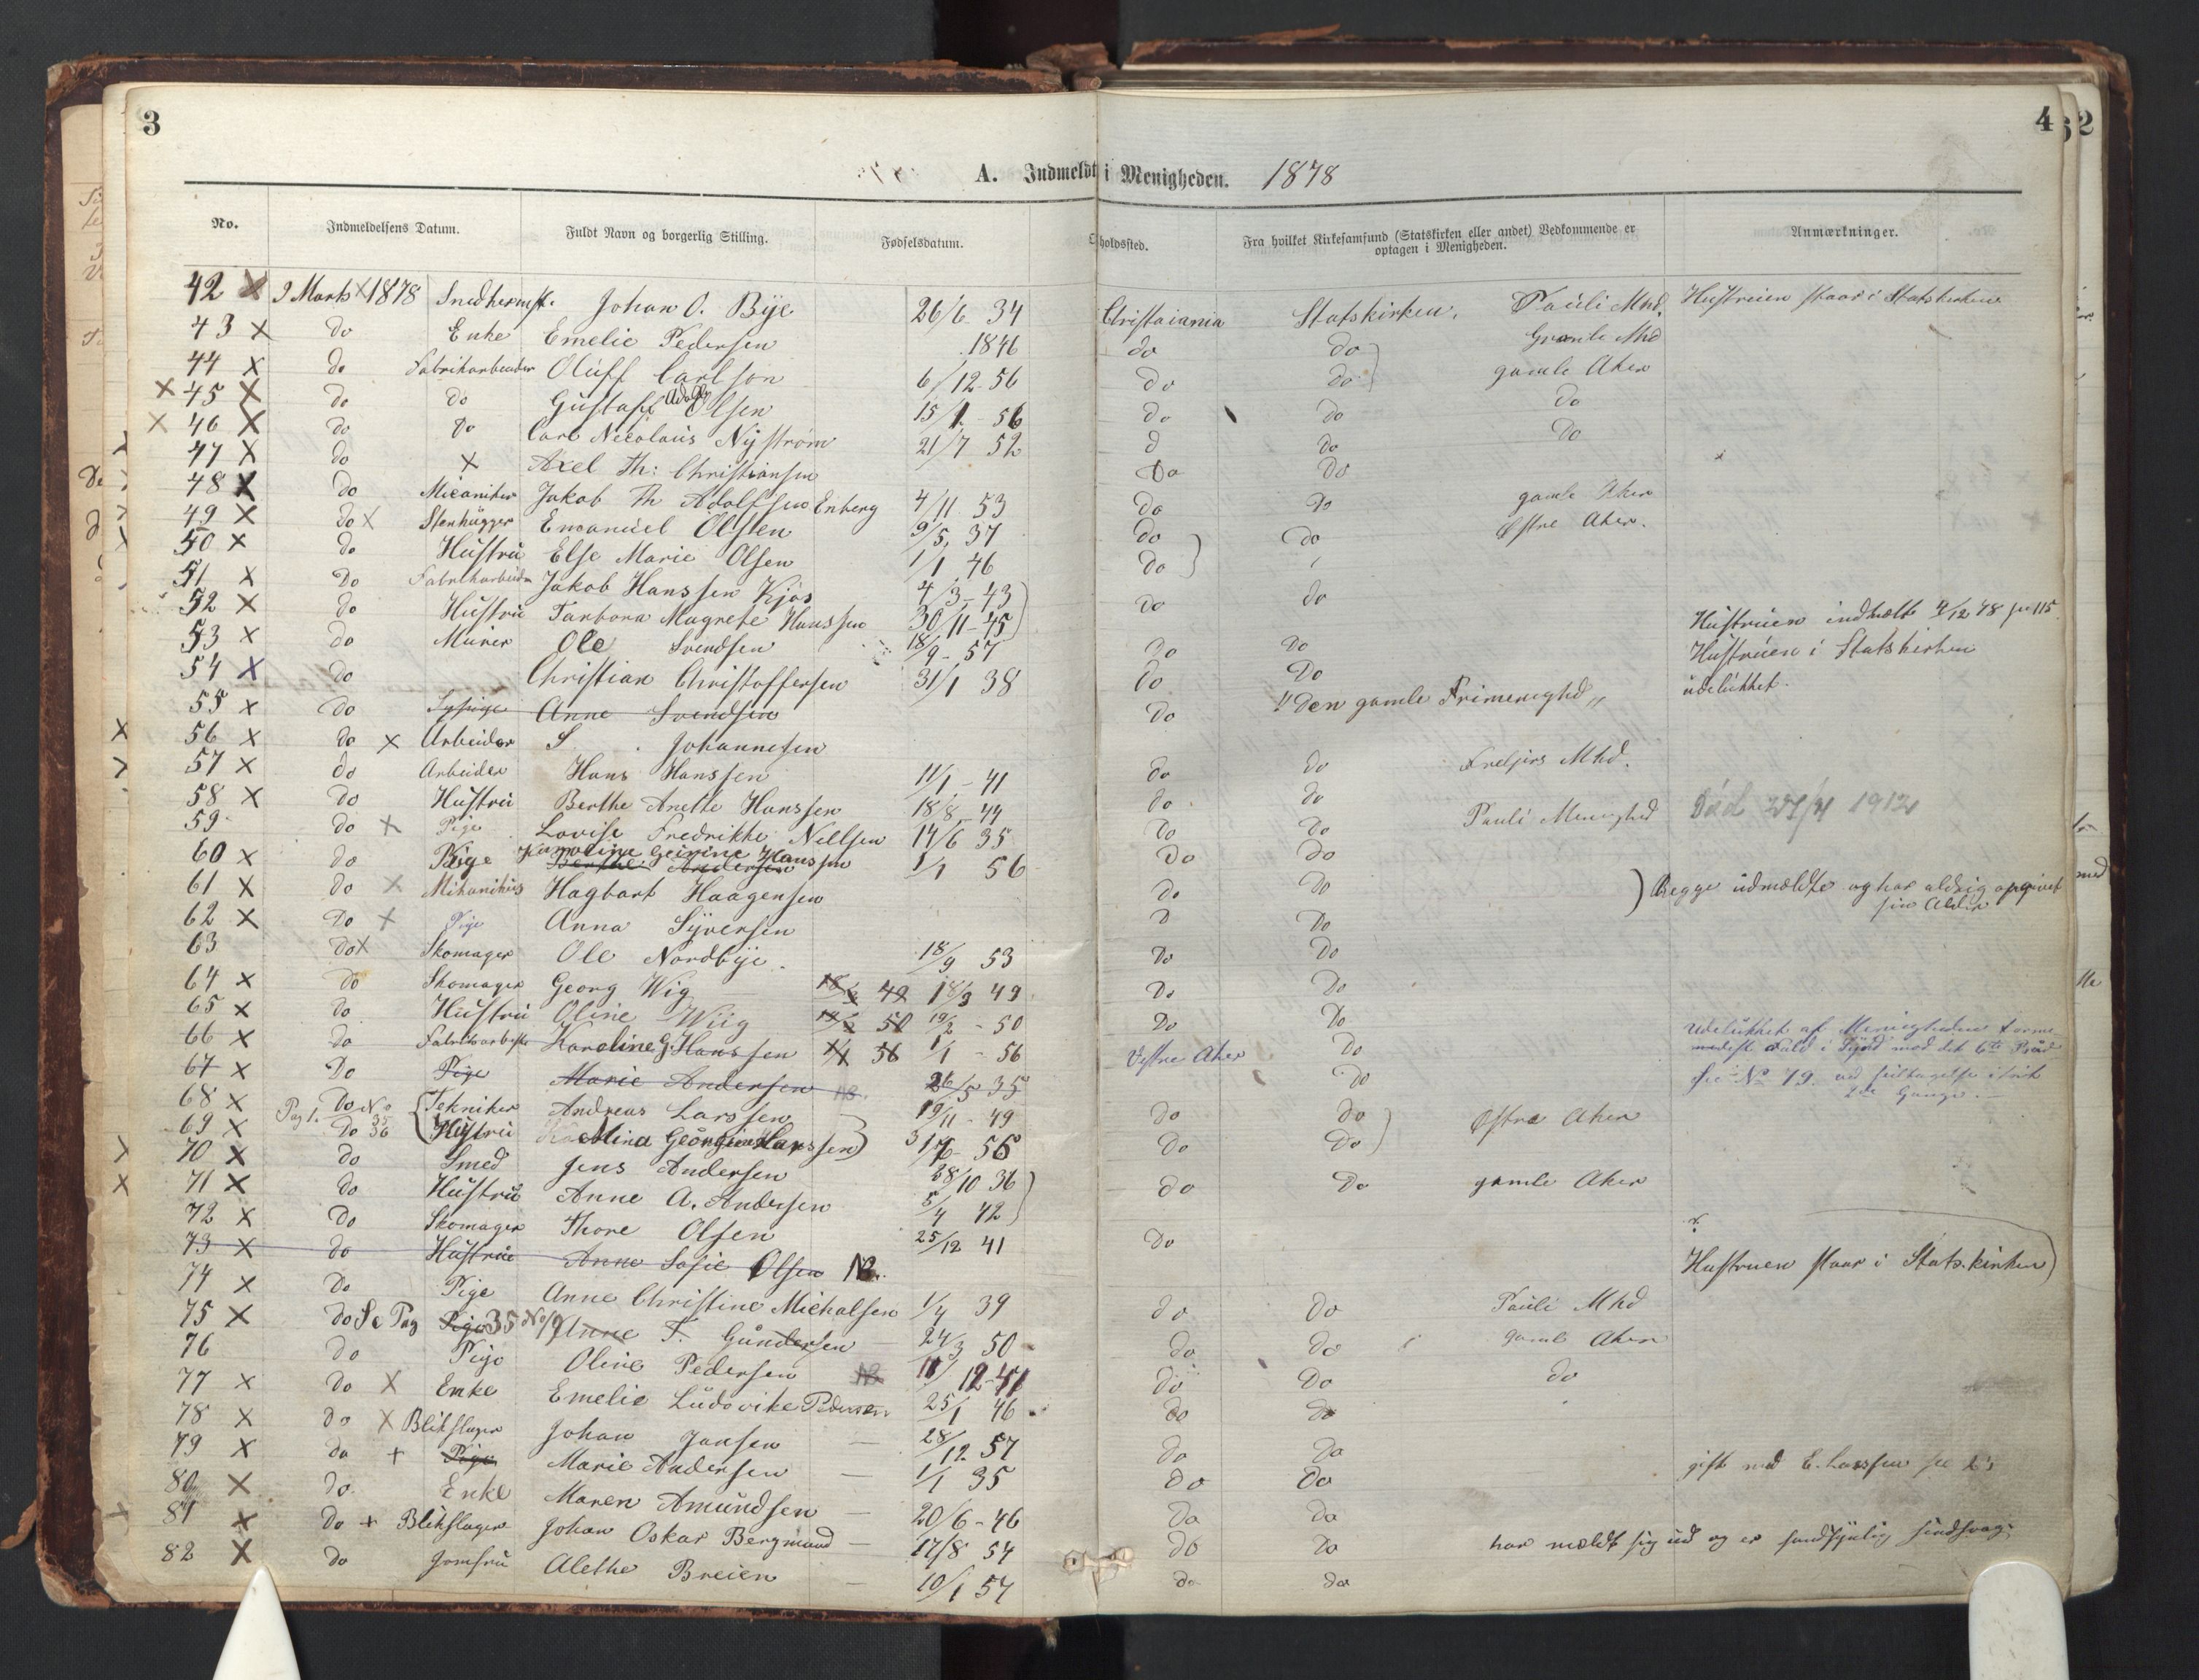 3
4
A. Indmeldt i Menigheden. 1878
No. Indmeldelsens Datum. Fuldt Navn og borgerlig Stilling. Fødselsdatum. holdssted. Fra hvilket Kirkesamfund (Statskirken eller andet) Vedkommende er optagen i Menigheden. Anmærkninger.
42 X 9 Marts X 1878 Johan O. Bye 26/6 34 Christaiania Statskirken. Pauli Mhd. Hustruen staar i Statskirken
43 X do Enke Emelie Pedersen 1846 do do Gamle Mhd
44 X do Fabrikarbeider Oluff Carlson 6/12 56 do do gamle Aker
X 45 X do do Gustaf Adolf Olsen 15/1 - 56 do do do
X 46 X do do Carl Nicolaus Nystrøm 21/7 52 d do do
47 X do X Axel Th: Christiansen do do
48 X do Jakob Th Adolfsen Enberg 4/11 53 do do gamle Aker
49 X do X Stenhugger Emanuel Olsten 9/5, 37 do do Østre Aker.
50 X do Hustru Else Marie Olsen 1/1 46 do
51 X do Fabrikarbeider Jakob Hanssen Kjøs 4/3 - 43 do do
52 X do Hustru Tarbora Magrete Hanssen 30/11 - 45
53 X do Murer Ole Svendsen 18/9 - 57 do do Hustruen indmeldt 4/12 78 115
54 X do Christian Christoffersen 31/1 38 do do Hustruen i Statskirken
55 X do Anne Svendsen do "Den gamle Frimenighed" udelukket.
X 56 X do X Arbeider S. Johannesen
57 X do Arbeider Hans Hanssen 11/1 - 41 do do Frelsers Mhd.
58 X do Hustru Berthe Anette Hanssen 18/8 44 do do
59 do X Pige Lovise Fredrikke Nellsen 14/6 35 do do Pauli Menighed Død 1912
60 X do Pige Karoline Geirine Hanssen Berthe Andersen 1/1 56 do do
61 X do X Mikanikus Hagbart Haagensen do do ) Begge udmeldte og har aldrig opgivet
sin Alder
62 X do X Pige Anna Syversen D do
63 do X Skomager Ole Nordbye 18/9 53 do do
64 X do Skomager Georg Wig 49 18/3 49 do do
65 X do Hustru Oline Wiig 50 19/2 - 50 do do
66 X do Karoline G. Hanssen 1/1 56 1/1 - 56 Vestre Aker do Udelukket af Menigheden
67 X do Pige Marie Andersen NB. 26/5 35 do
68 X Pag 1. do No 35 Tekniker Andreas Larssen 19/11 - 49 do do Østre Aker
69 X do 36 Hustru Georgine Larssen 56 do do
X 70 X do Smed Jens Andersen 28/10 36 do do gamle Aker
X 71 X do Hustru Anne A. Andersen 5/4 42
72 X do Skomager Thore Olsen 25/12 41 do
73 X do Hustru Anne Sofie Olsen NB. Hustruen staar i Stats.kirken)
74 X do Pige Anne Christine Michalsen 1/4 39 do do Pauli Mhd
75 X do Se Pag Pige 35 No 19 Anne F. Gundersen 24/3 50 do do gamle Aker
76 do Pige Oline Pedersen NB 12 - 51 do do do
77 X do X Enke Emelie Ludovike Pedersen 25/1 46 do do
78 X do X Blikslager Johan Jansen — 28/12 57 do do
79 X do + Pige Marie Andersen — 1/1 35 do do gift med E. Larssen se 23
80 X do Enke Maren Amundsen — 20/6 - 46 do do
81 X do + Blikslager Johan Oskar Bergmand — 17/8 54 do do har meldt sig ud og er sindsvag.
82 X do Jomfru Alethe Breien — 10/1 57 do do